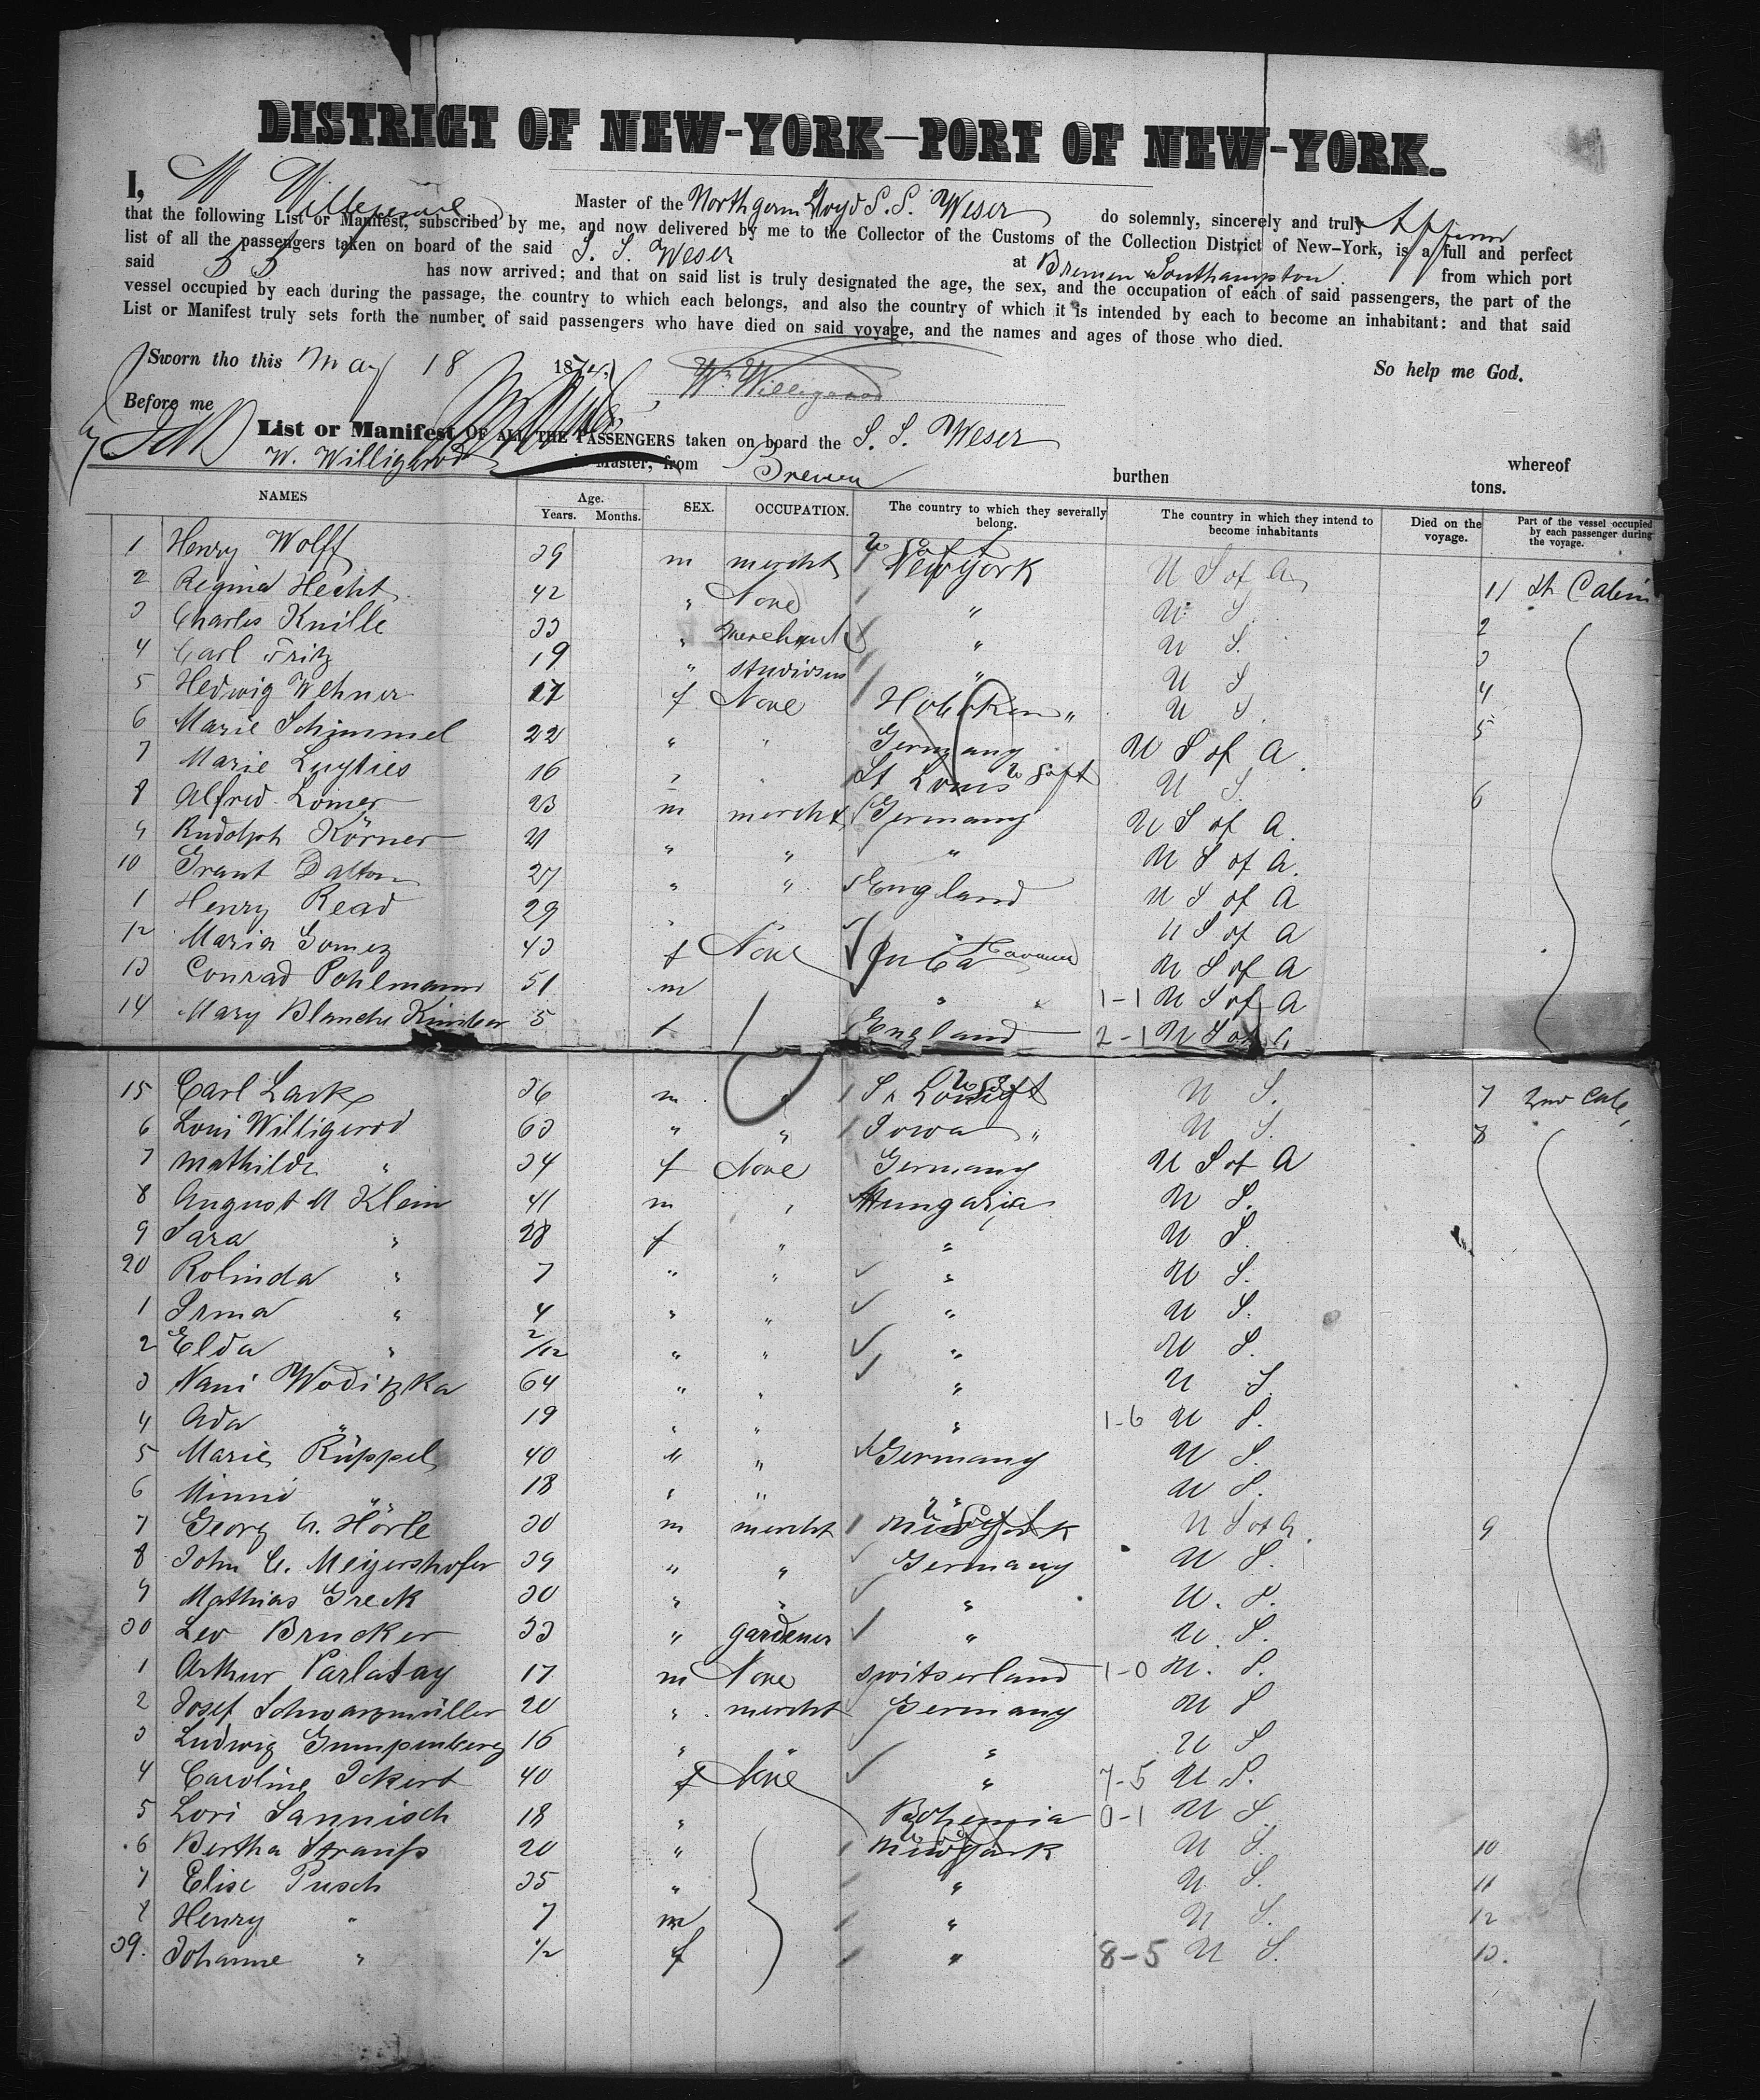 DISTRICT OF NEW-YORK—PORT OF NEW-YORK.
I, W Willigerod Master of the North germ Lloyd S. S. Weser do solemnly, sincerely and truly Affirm
that the following List or Manifest, subscribed by me, and now delivered by me to the Collector of the Customs of the Collection District of New-York, is a full and perfect
list of all the passengers taken on board of the said S. S. Weser at Bremen & Southampton from which port
said SS has now arrived; and that on said list is truly designated the age, the sex, and the occupation of each of said passengers, the part of the
vessel occupied by each during the passage, the country to which each belongs, and also the country of which it is intended by each to become an inhabitant: and that said
List or Manifest truly sets forth the number of said passengers who have died on said voyage, and the names and ages of those who died.
So help me God.
Sworn tho this May 18 187
W. Willigerod
Before me
List or Manifest OF ALL THE PASSENGERS taken on board the S. S. Weser whereof
W. Willigerod is Master, from Bremen burthen tons.
NAMES Age. Years. Months. SEX. OCCUPATION. The country to which they severally belong. The country in which they intend to become inhabitants Died on the voyage. Part of the vessel occupied by each passenger during the voyage.
1 Henry Wolff 39 m mercht New York U S of A 1 1st Cabin
2 Regina Hecht 42 " None " U. S. 2
3 Charles Knille 33 " Merchant " U S. 3
4 Carl Fritz 19 " " U S 4
5 Hedwig Wehner 17 f None Hoboken " U S. 5
6 Marie Schimmel 22 " " Germany U S of A.
7 Marie Luyties 16 " " St Louis U S. 6
8 Alfred Lomer 23 m mercht Germany U S of A.
9 Rudolph Körner 21 " " " U S of A.
10 Grant Dalton 27 " " England U S of A
1 Henry Read 29 " U S of A
12 Maria Gomez 43 f None Cuba Havana U S of A
13 Conrad Pohlmann 51 m " " 1-1 U S of A
14 Mary Blanche Kimber 5 f England 2-1 U S of A
15 Carl Lack 36 m " St Louis U S. 7 2nd Cab,
6 Loui Willigerod 63 " " Iowa " U S. 8
7 Mathilde " 34 f None Germany U S of A
8 August M Klein 41 m " Hungaria U S.
9 Sara " 28 f " " U S.
20 Rolinda " 7 " " " U S.
1 Irma " 4 " " " U S.
2 Elda " 2/12 " " " U S.
3 Nani Woditzka 64 " " " U S.
4 Ada " 19 " " " 1-6 U S.
5 Marie Rüppel 40 " " Germany U S.
6 Minni " 18 " " " U S.
7 Georg A. Hörle 30 m mercht New York U S of A. 9
8 John C. Meyershofer 39 " " Germany U S.
9 Mathias Greck 30 " " " U. S.
30 Leo Brucker 33 " gardener " U. S.
1 Arthur Parlatay 17 m None switserland 1-0 U. S.
2 Josef Schwarzmüller 20 " mercht Germany U S
3 Ludwig Gumpenberg 16 " " " U S
4 Caroline Ickert 40 f None " 7-5 U S.
5 Lori Sannisch 18 " Bohemia 0-1 U S.
6 Bertha Strauss 20 " New York U S. 10
7 Elise Pusch 35 " " U. S. 11
8 Henry " 7 m " U S. 12
39. Johanne " 1/2 f " 8-5 U S. 13.